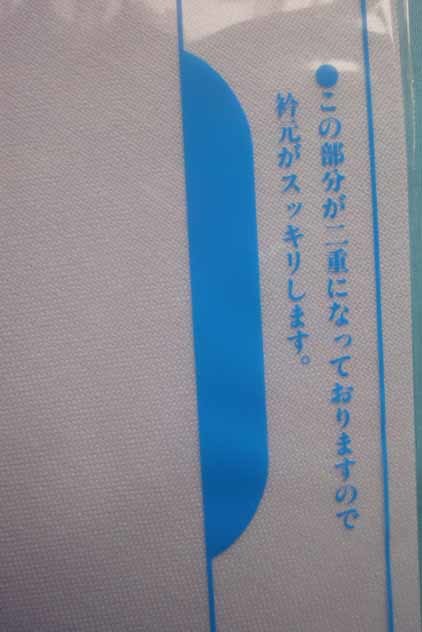 ●この部分が二重になっておりますので
衿元がスッキリします。